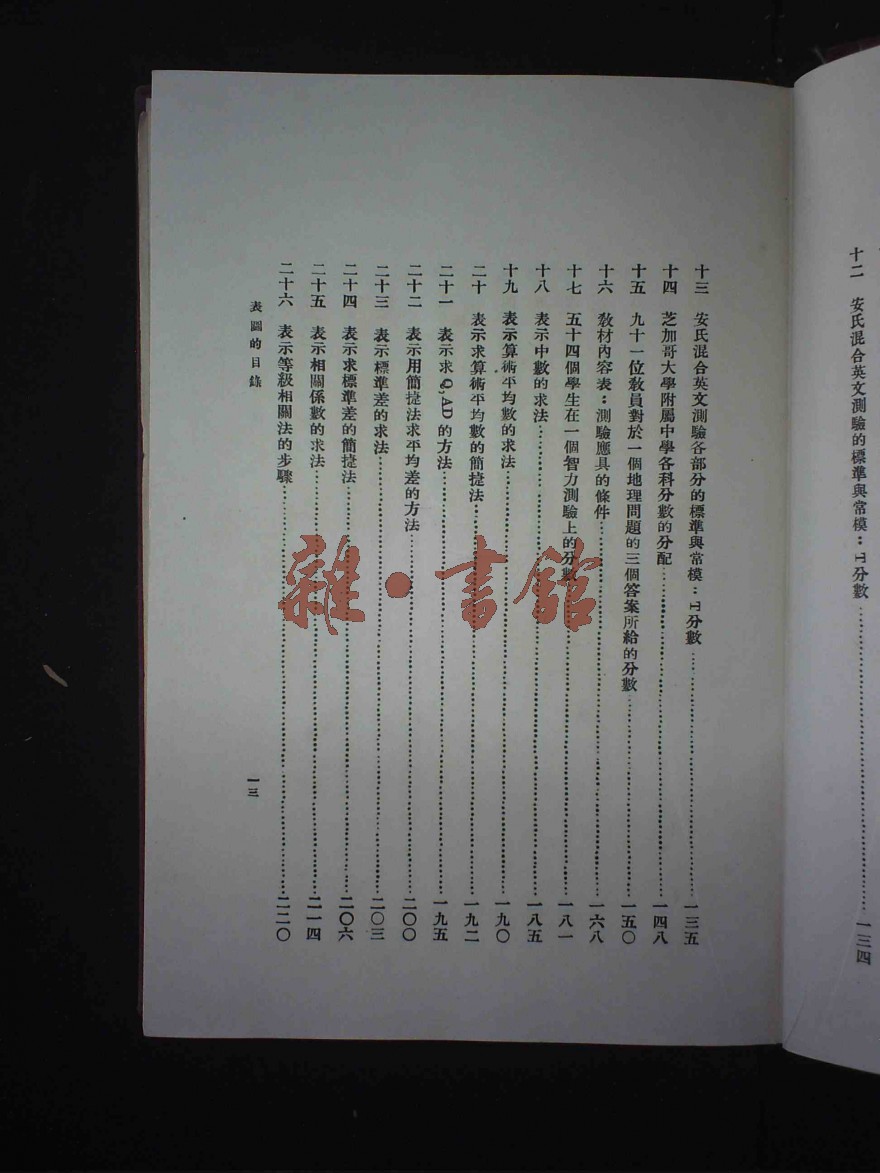 十二　安氏混合英文測驗的標準與常模：T分數……一三四
十三　安氏混合英文測驗各部分的標準與常模：T分數……一三五
十四　芝加哥大學附屬中學各科分數的分配……一四八
十五　九十一位教員對於一個地理問題的三個答案所給的分數……一五〇
十六　教材內容表：測驗應具的條件……一六八
十七　五十四個學生在一個智力測驗上的分數……一八一
十八　表示中數的求法……一八五
十九　表示算術平均數的求法……一九〇
二十　表示求算術平均數的簡捷法……一九二
二十一　表示求Q,AD的方法……一九五
二十二　表示用簡捷法求平均差的方法……二〇〇
二十三　表示標準差的求法……二〇三
二十四　表示求標準差的簡捷法……二〇六
二十五　表示相關係數的求法……二一四
二十六　表示等級相關法的步驟……二二〇
表圖的目錄　一三
雜·書館